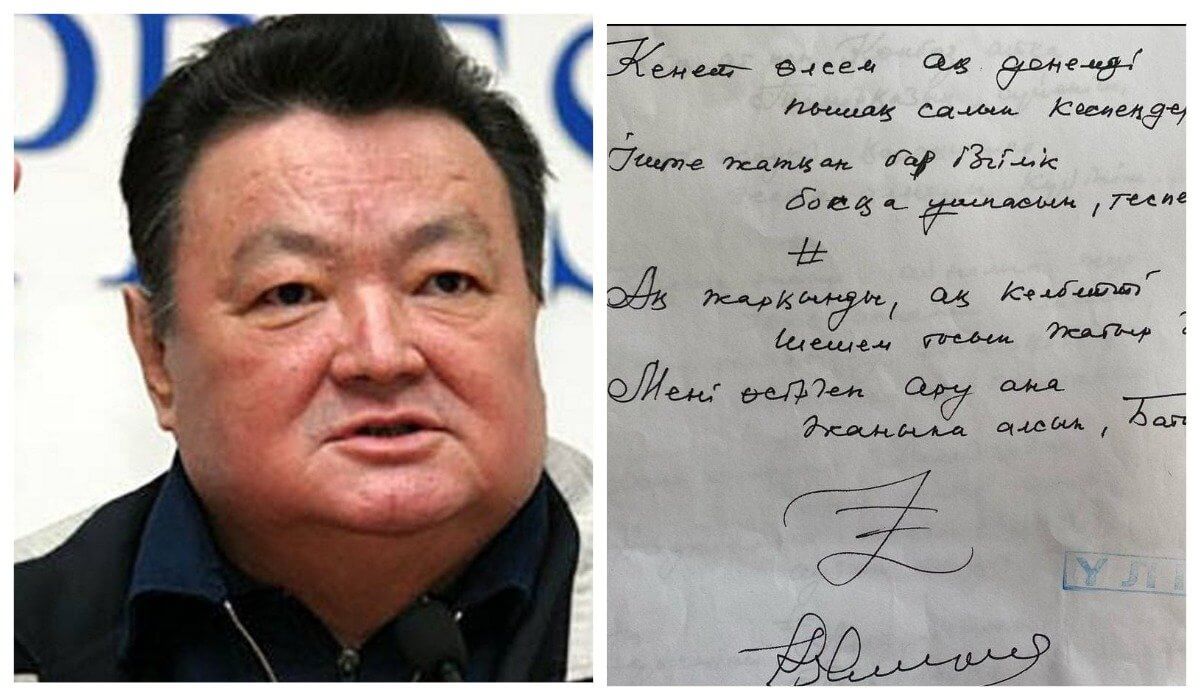 Кенет өлсем ақ денемді
пышақ салып кеспеңдер
Іште жатқан бар ізгілік
босқа ұшпасын, теспе
#
Ақ жарқынды, ақ келбетті
шешем тосып жатыр
Мені өсірген Ару ана
жанына алсын, Бат
ҮЛГ